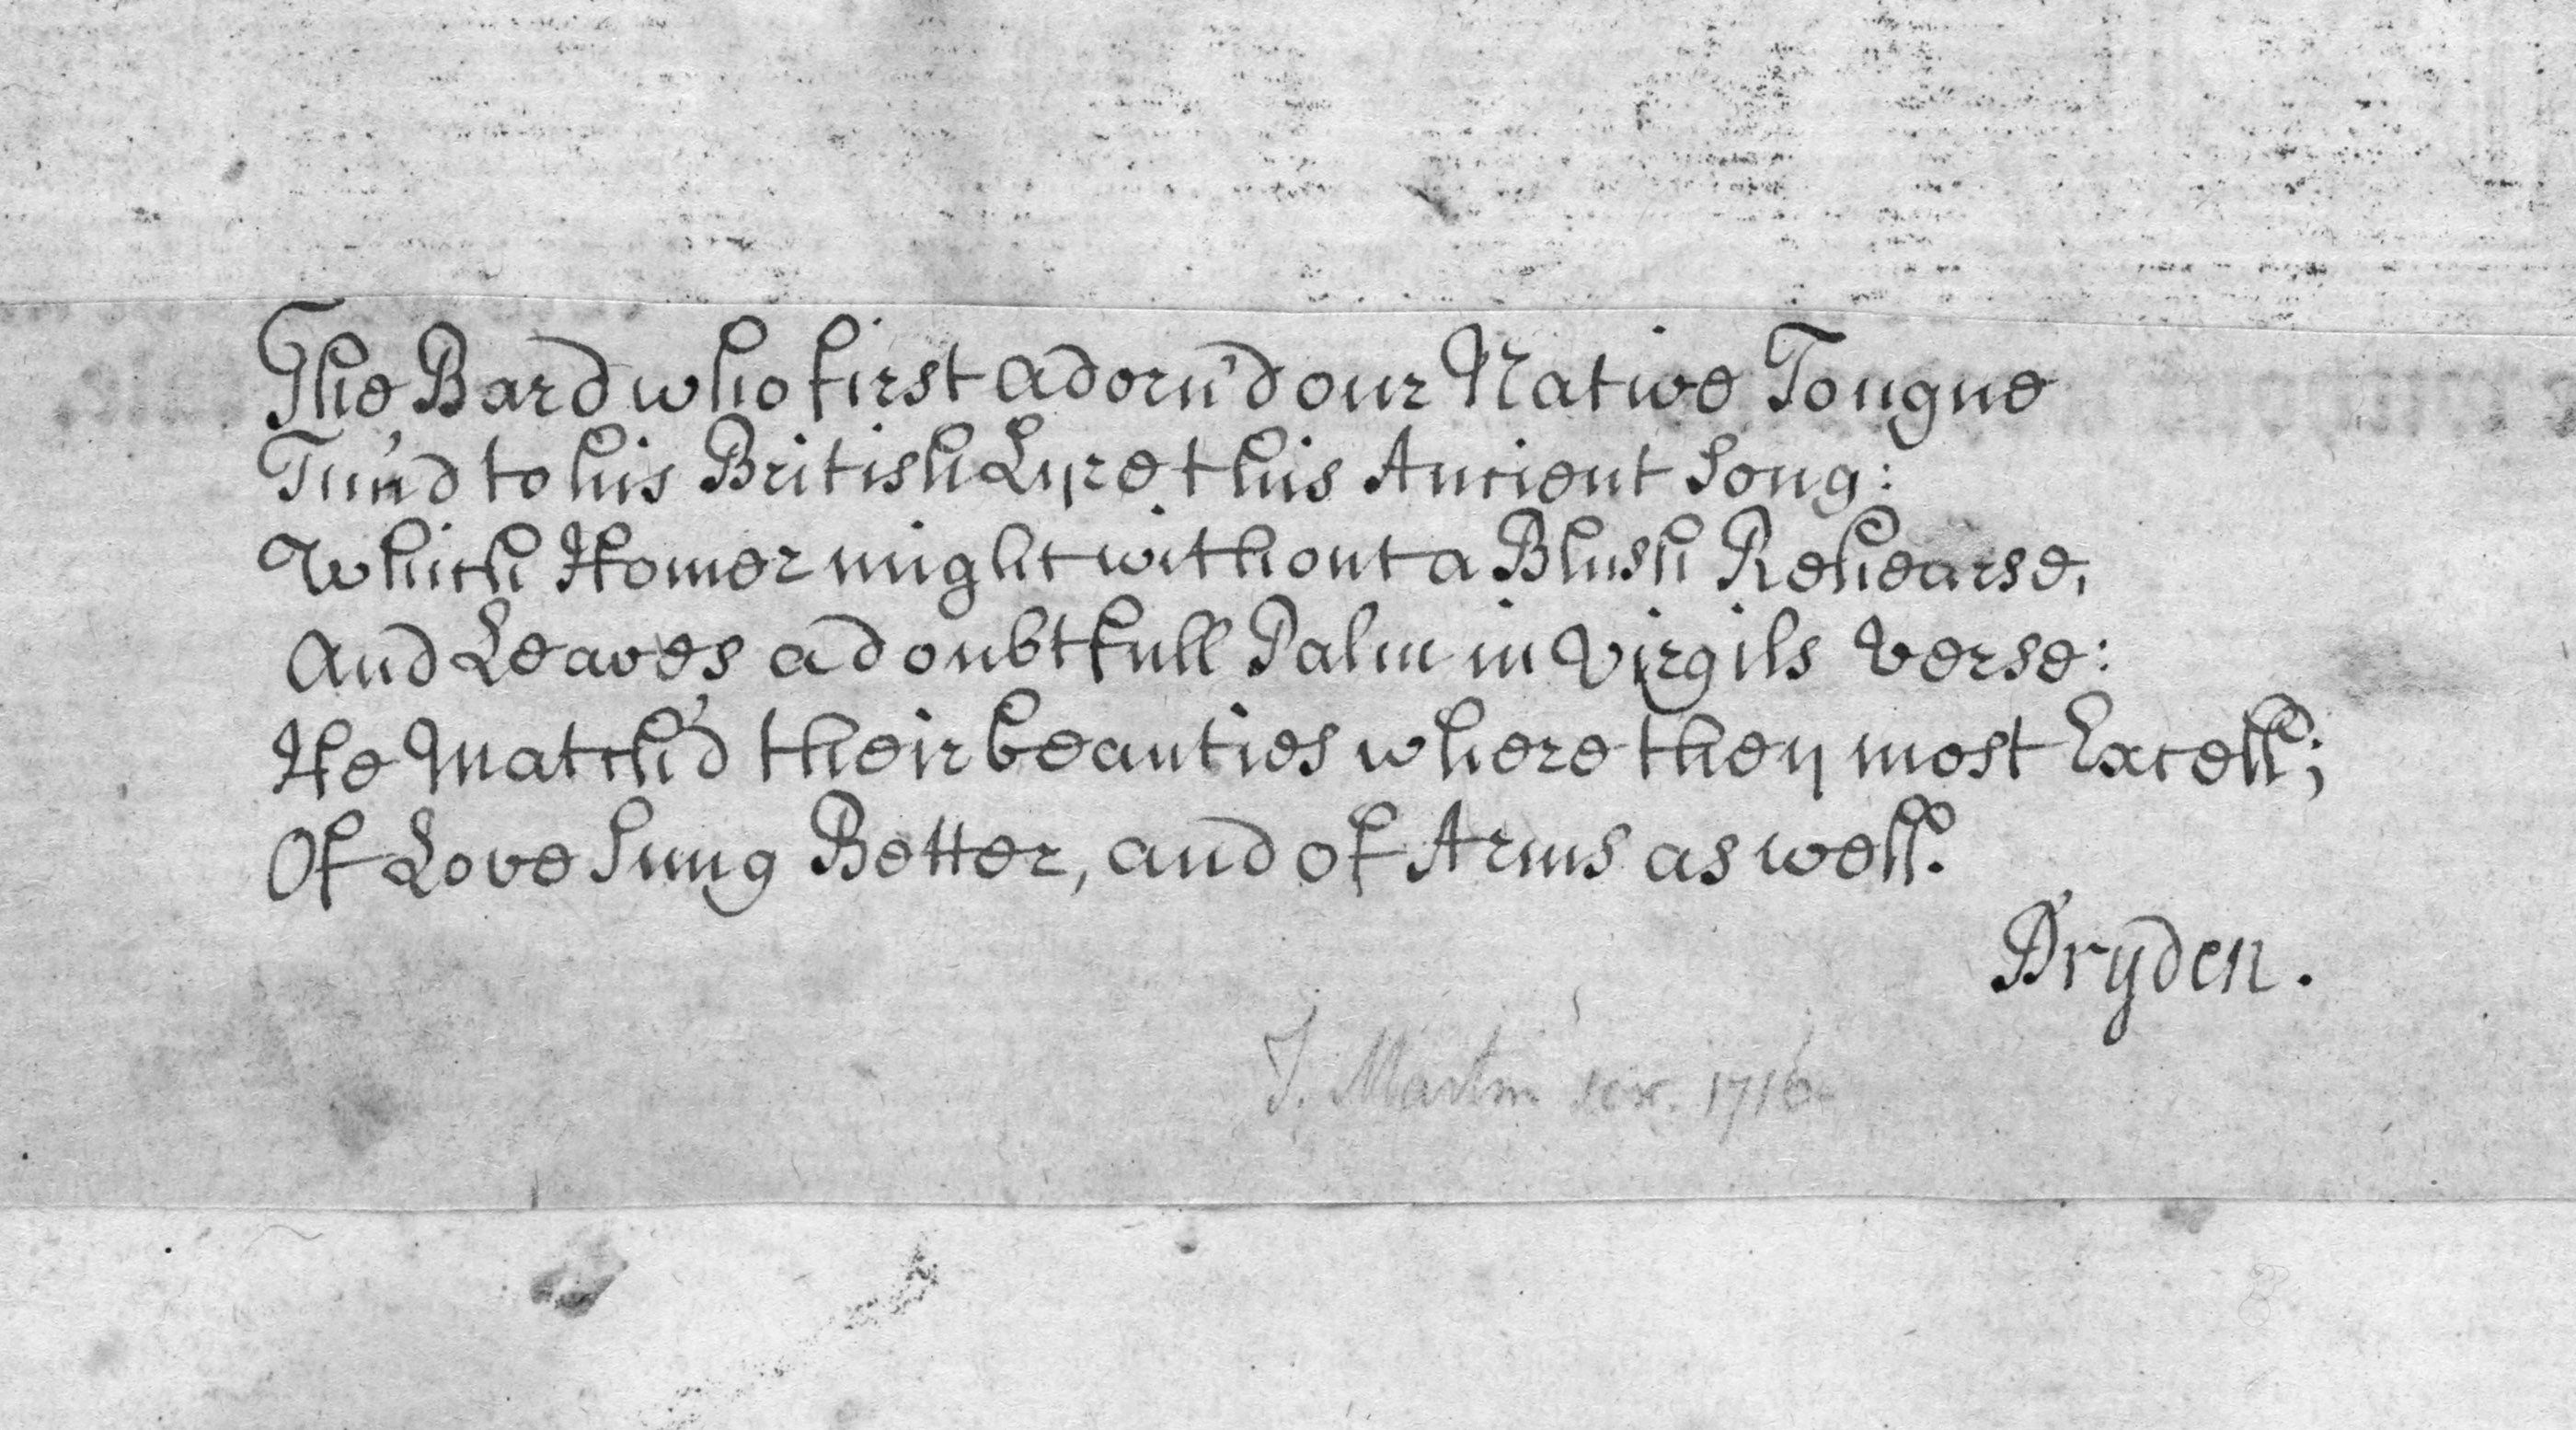 The Bard who first adorn'd our Native Tongue
Tun'd to his British Lyre this Ancient Song:
Which Homer might without a Blush Rehearse,
And Leaves a doubtfull Palm in Virgils Verse:
He Match'd their beauties where they most Excell;
Of Love Sung Better, and of Arms as well.
Dryden.
J. Martin scr. 1716